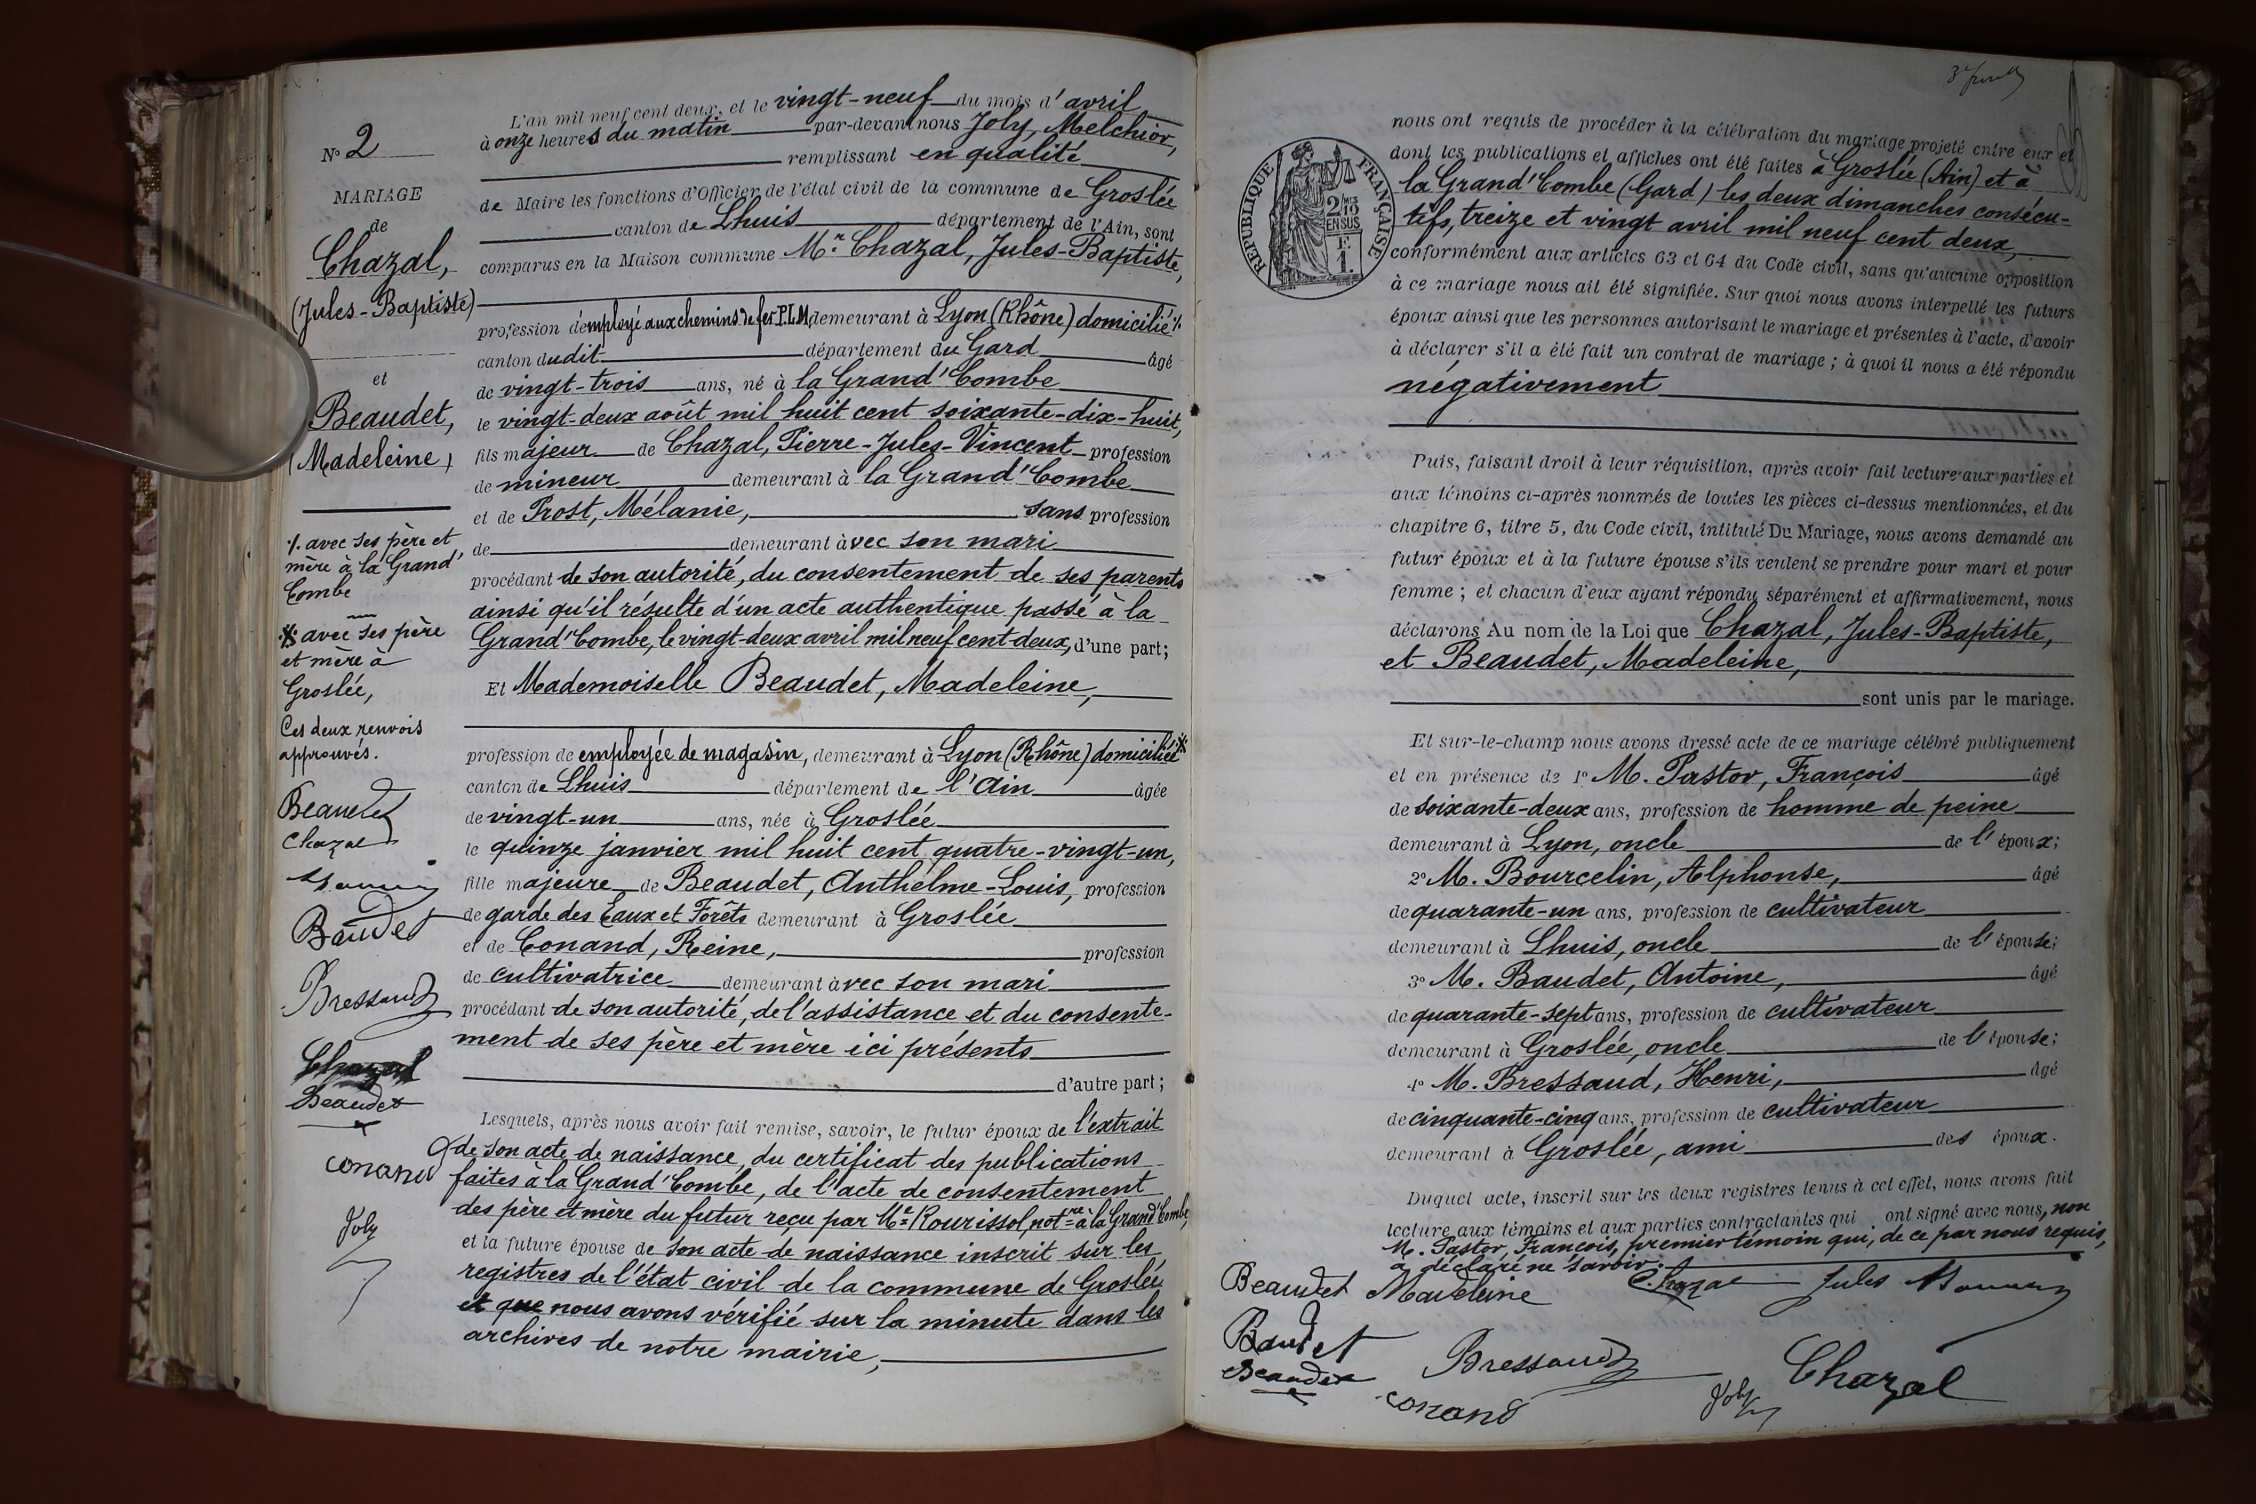 N° 2
MARIAGE
de
Chazal,
(Jules-Baptiste)
et
Beaudet,
(Madeleine)
·/. avec ses père et
mère à la Grand'
Combe
·X· avec ses père
et mère à
Groslée,
Ces deux renvois
approuvés.
Beaudet
Chazal
Baudet
Bressaud
Chazal
Beaudet
Conand
Joly
L'an mil neuf cent deux, et le vingt-neuf du mois d'avril
à onze heures du matin par-devant nous Joly, Melchior,
remplissant en qualité
de Maire les fonctions d'Officier de l'état civil de la commune de Groslée
canton de Lhuis département de l'Ain, sont
comparus en la Maison commune Mr. Chazal, Jules-Baptiste,
profession d'employé aux chemins de fer P.L.M. demeurant à Lyon (Rhône) domicilié ·/.
canton dudit département du Gard âgé
de vingt-trois ans, né à la Grand'Combe
le vingt-deux août mil huit cent soixante-dix-huit,
fils majeur de Chazal, Pierre-Jules-Vincent profession
de mineur demeurant à la Grand'Combe
et de Prost, Mélanie, sans profession
de demeurant avec son mari
procédant de son autorité, du consentement de ses parents
ainsi qu'il résulte d'un acte authentique passé à la
Grand'Combe, le vingt-deux avril mil neuf cent deux, d'une part;
Et Mademoiselle Beaudet, Madeleine,
profession de employée de magasin, demeurant à Lyon (Rhône) domiciliée ·X·
canton de Lhuis département de l'Ain âgée
de vingt-un ans, née à Groslée
le quinze janvier mil huit cent quatre-vingt-un,
fille majeure de Beaudet, Anthelme-Louis, profession
de garde des Eaux et Forêts demeurant à Groslée
et de Conand, Reine, profession
de cultivatrice demeurant avec son mari
procédant de son autorité, de l'assistance et du consente-
ment de ses père et mère ici présents
d'autre part;
Lesquels, après nous avoir fait remise, savoir, le futur époux de l'extrait
de son acte de naissance, du certificat des publications
faites à la Grand'Combe, de l'acte de consentement
des père et mère du futur reçu par Me Rourissol, notre à la Grand'Combe,
et la future épouse de son acte de naissance inscrit sur les
registres de l'état civil de la commune de Groslée
et que nous avons vérifié sur la minute dans les
archives de notre mairie,
RÉPUBLIQUE FRANÇAISE
2/10
EN SUS
1 F.
nous ont requis de procéder à la célébration du mariage projeté entre eux et
dont les publications et affiches ont été faites à Groslée (Ain) et à
la Grand'Combe (Gard) les deux dimanches consécu-
tifs, treize et vingt avril mil neuf cent deux,
conformément aux articles 63 et 64 du Code civil, sans qu'aucune opposition
à ce mariage nous ait été signifiée. Sur quoi nous avons interpellé les futurs
époux ainsi que les personnes autorisant le mariage et présentes à l'acte, d'avoir
à déclarer s'il a été fait un contrat de mariage; à quoi il nous a été répondu
négativement
Puis, faisant droit à leur réquisition, après avoir fait lecture aux parties et
aux témoins ci-après nommés de toutes les pièces ci-dessus mentionnées, et du
chapitre 6, titre 5, du Code civil, intitulé Du Mariage, nous avons demandé au
futur époux et à la future épouse s'ils veulent se prendre pour mari et pour
femme; et chacun d'eux ayant répondu séparément et affirmativement, nous
déclarons Au nom de la Loi que Chazal, Jules-Baptiste,
et Beaudet, Madeleine,
sont unis par le mariage.
Et sur-le-champ nous avons dressé acte de ce mariage célébré publiquement
et en présence de 1° M. Pastor, François âgé
de soixante-deux ans, profession de homme de peine
demeurant à Lyon, oncle de l'époux;
2° M. Bourcelin, Alphonse, âgé
de quarante-un ans, profession de cultivateur
demeurant à Lhuis, oncle de l'épouse;
3° M. Baudet, Antoine, âgé
de quarante-sept ans, profession de cultivateur
demeurant à Groslée, oncle de l'épouse;
4° M. Bressaud, Henri, âgé
de cinquante-cinq ans, profession de cultivateur
demeurant à Groslée, ami des époux.
Duquel acte, inscrit sur les deux registres tenus à cet effet, nous avons fait
lecture aux témoins et aux parties contractantes qui ont signé avec nous, non
M. Pastor, François, premier témoin qui, de ce par nous requis,
a déclaré ne savoir.
Beaudet Madeleine Chazal Jules
Baudet Bressaud Chazal
Beaudet Conand Joly